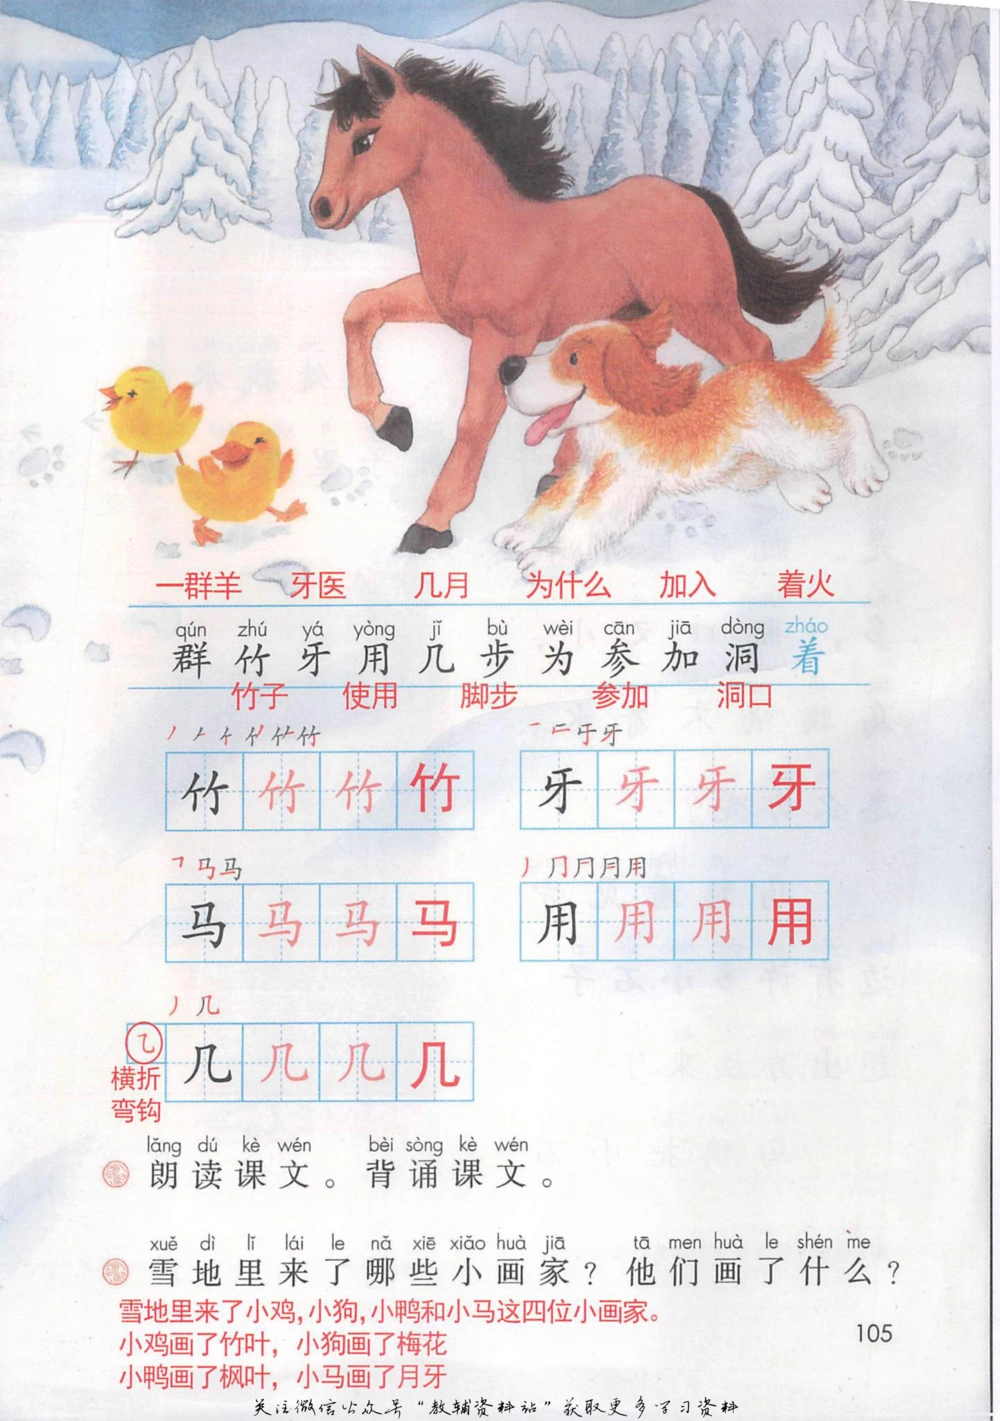 一群羊 牙医 几月 为什么 加入 着火
qún zhú yá yòng jǐ bù wèi cān jiā dòng zháo
群 竹 牙 用 几 步 为 参 加 洞 着
竹子 使用 脚步 参加 洞口
竹 竹 竹 竹 牙 牙 牙 牙
马 马 马 马 用 用 用 用
几 几 几 几
横折
弯钩
lǎng dú kè wén bèi sòng kè wén
朗读课文。背诵课文。
xuě dì lǐ lái le nǎ xiē xiǎo huà jiā tā men huà le shén me
雪地里来了哪些小画家？他们画了什么？
雪地里来了小鸡,小狗,小鸭和小马这四位小画家。
小鸡画了竹叶，小狗画了梅花
小鸭画了枫叶，小马画了月牙
105
关注微信公众号“教辅资料站”获取更多学习资料